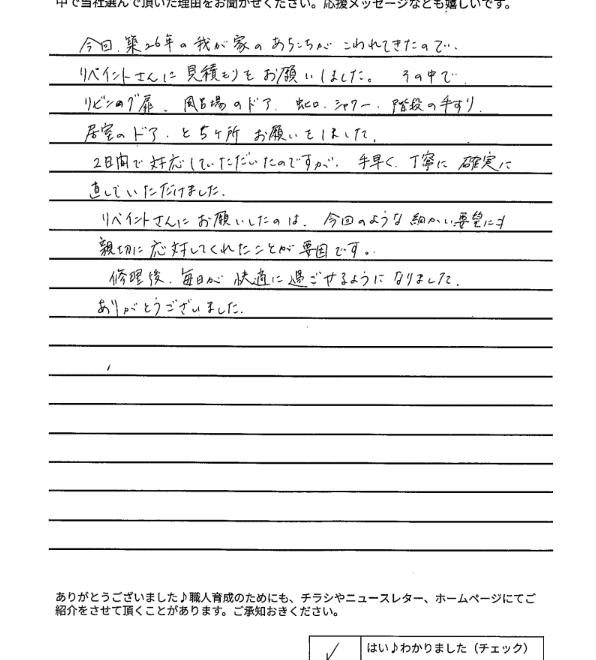 中で当社選んで頂いた理由をお聞かせください。応援メッセージなども嬉しいです。
今回、築26年の我が家のあちこちがこわれてきたので、
リペイントさんに見積もりをお願いしました。その中で
リビングの扉、風呂場のドア、蛇口、シャワー、階段の手すり、
居室のドア、と5ヶ所お願いをしました。
2日間で対応していただいたのですが、手早く、丁寧に確実に
直していただけました。
リペイントさんにお願いしたのは、今回のような細かい要望にも
親切に応対してくれたことが要因です。
修理後、毎日が快適に過ごせるようになりました。
ありがとうございました。
ありがとうございました♪職人育成のためにも、チラシやニュースレター、ホームページにてご
紹介をさせて頂くことがあります。ご承知おきください。
✓ はい♪わかりました（チェック）